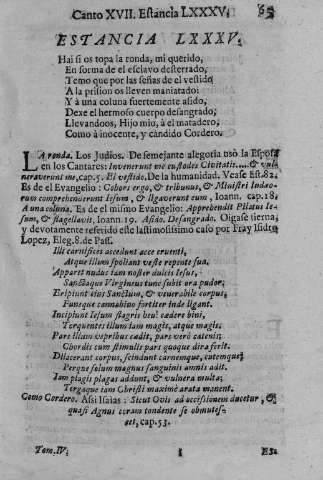 Canto XVII. Estancia LXXXV. 65
ESTANCIA LXXXV.
Hai si os topa la ronda, mi querido,
En forma de el esclavo desterrado,
Temo que por las señas de el vestido
A la prision os lleven maniatado:
Y à una coluna fuertemente asido,
Dexe el hermoso cuerpo desangrado;
Llevandoos, Hijo mio, à el matadero;
Como à inocente, y càndido Cordero.
LA ronda. Los Judios. De semejante alegoria usò la Esposa
en los Cantares: Invenerunt me custodes Civitatis.... & vulneraverunt me, cap. 5. El vestido. De la humanidad. Vease Est. 82.
Es de el Evangelio: Cohors ergo, & tribunus, & Ministri Iudæorum comprehenderunt Iesum, & ligaverunt eum, Ioann. cap. 18.
A una coluna. Es de el mismo Evangelio: Apprehendit Pilatus Iesum, & flagellavit, Ioann. 19. Asido. Desangrado. Oigase tierna,
y devotamente referido este lastimosissimo caso por Fray Isidro
Lopez, Eleg. 8. de Pass.
Illi carnifices accedunt acce cruenti,
Atque illum spoliant veste repente sua.
Apparet nudus iam noster dulcis Iesus,
Sanctaque Virgineus tunc subit ora pudor;
Eripiunt eius Sanctum, & venerabile corpus;
Funeque cannabino fortiter inde ligant.
Incipiunt Iesum flagris heu! cædere bini,
Torquentes illum iam magis, atque magis;
Pars illum vepribus cædit, pars verò catenis;
Chordis cum stimulis pars quoque dira ferit.
Dilacerant corpus, scindunt carnemque, cutemque;
Perque solum magnus sanguinis amnis adit.
Iam plagis plagas addunt, & vulnera multa;
Tergaque iam Christi maximè arata manent.
Como Cordero. Assi Isaias: Sicut Ovis ad occisionem ducetur, &
quasi Agnus coram tondente se obmutescet, cap. 53.
Tom. IV. I Es-